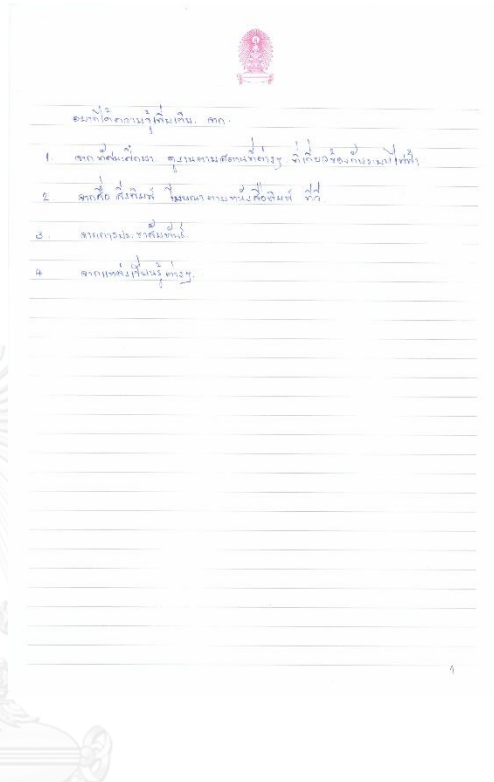 อยากได้ความรู้เพิ่มเติม จาก.
1. จากทัศนะศึกษา ดูงานตามสถานที่ต่างๆ ที่เกี่ยวข้องกับระบบไฟฟ้า
2. จากสื่อ สิ่งพิมพ์ โฆษณาตามหนังสือพิมพ์ ทีวี
3. จากการประชาสัมพันธ์.
4. จากแหล่งเรียนรู้ต่างๆ.
1